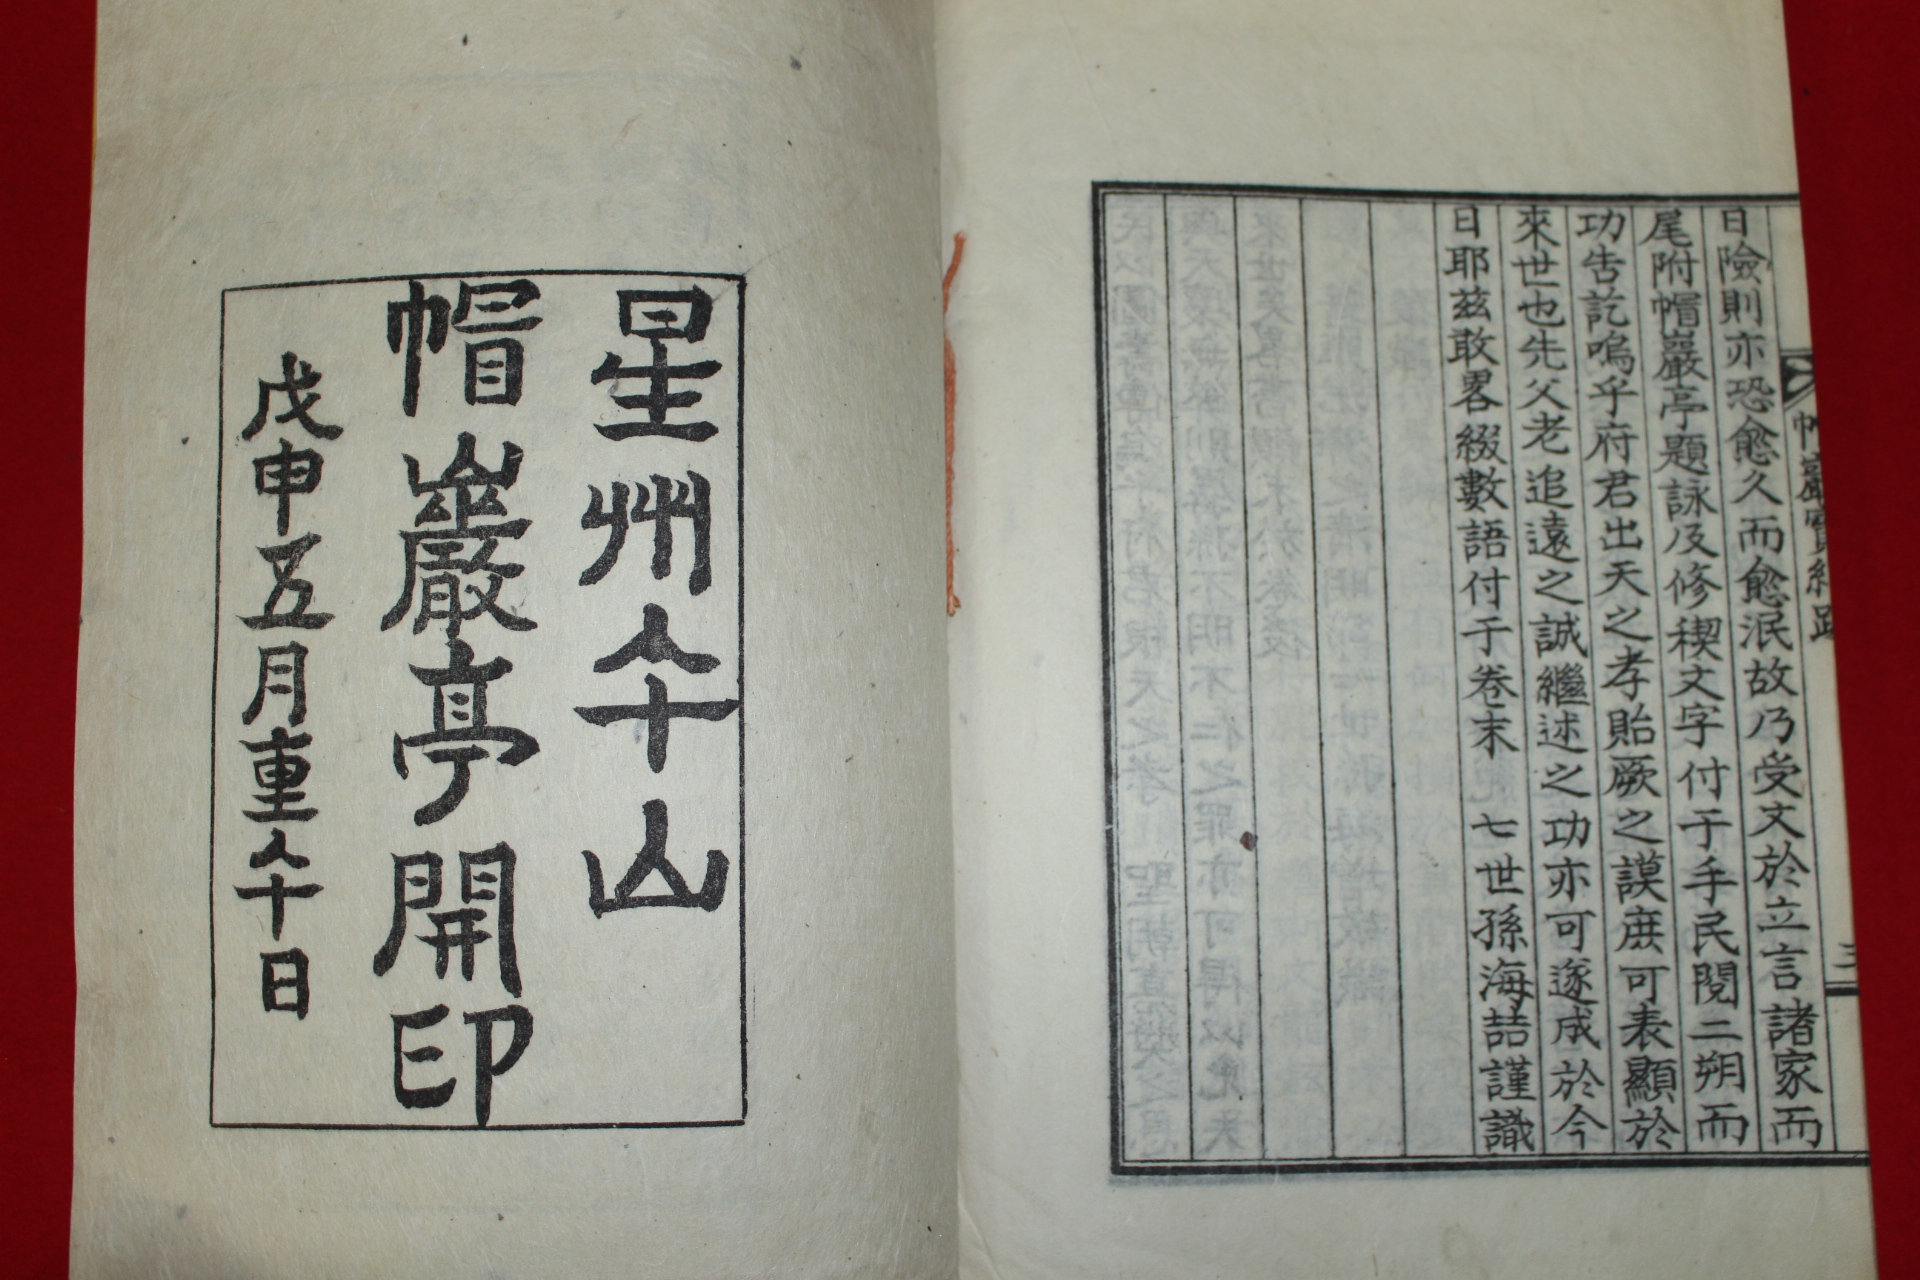 日險則亦恐愈久而愈泯故乃受文於立言諸家而
尾附帽巖亭題詠及修稧文字付于手民閱二朔而
功告訖嗚乎府君出天之孝貽厥之謨庶可表顯於
來世也先父老追遠之誠繼述之功亦可遂成於今
日耶玆敢畧綴數語付于卷末 七世孫海喆謹識
星州伞山
帽巖亭開印
戊申五月重伞日